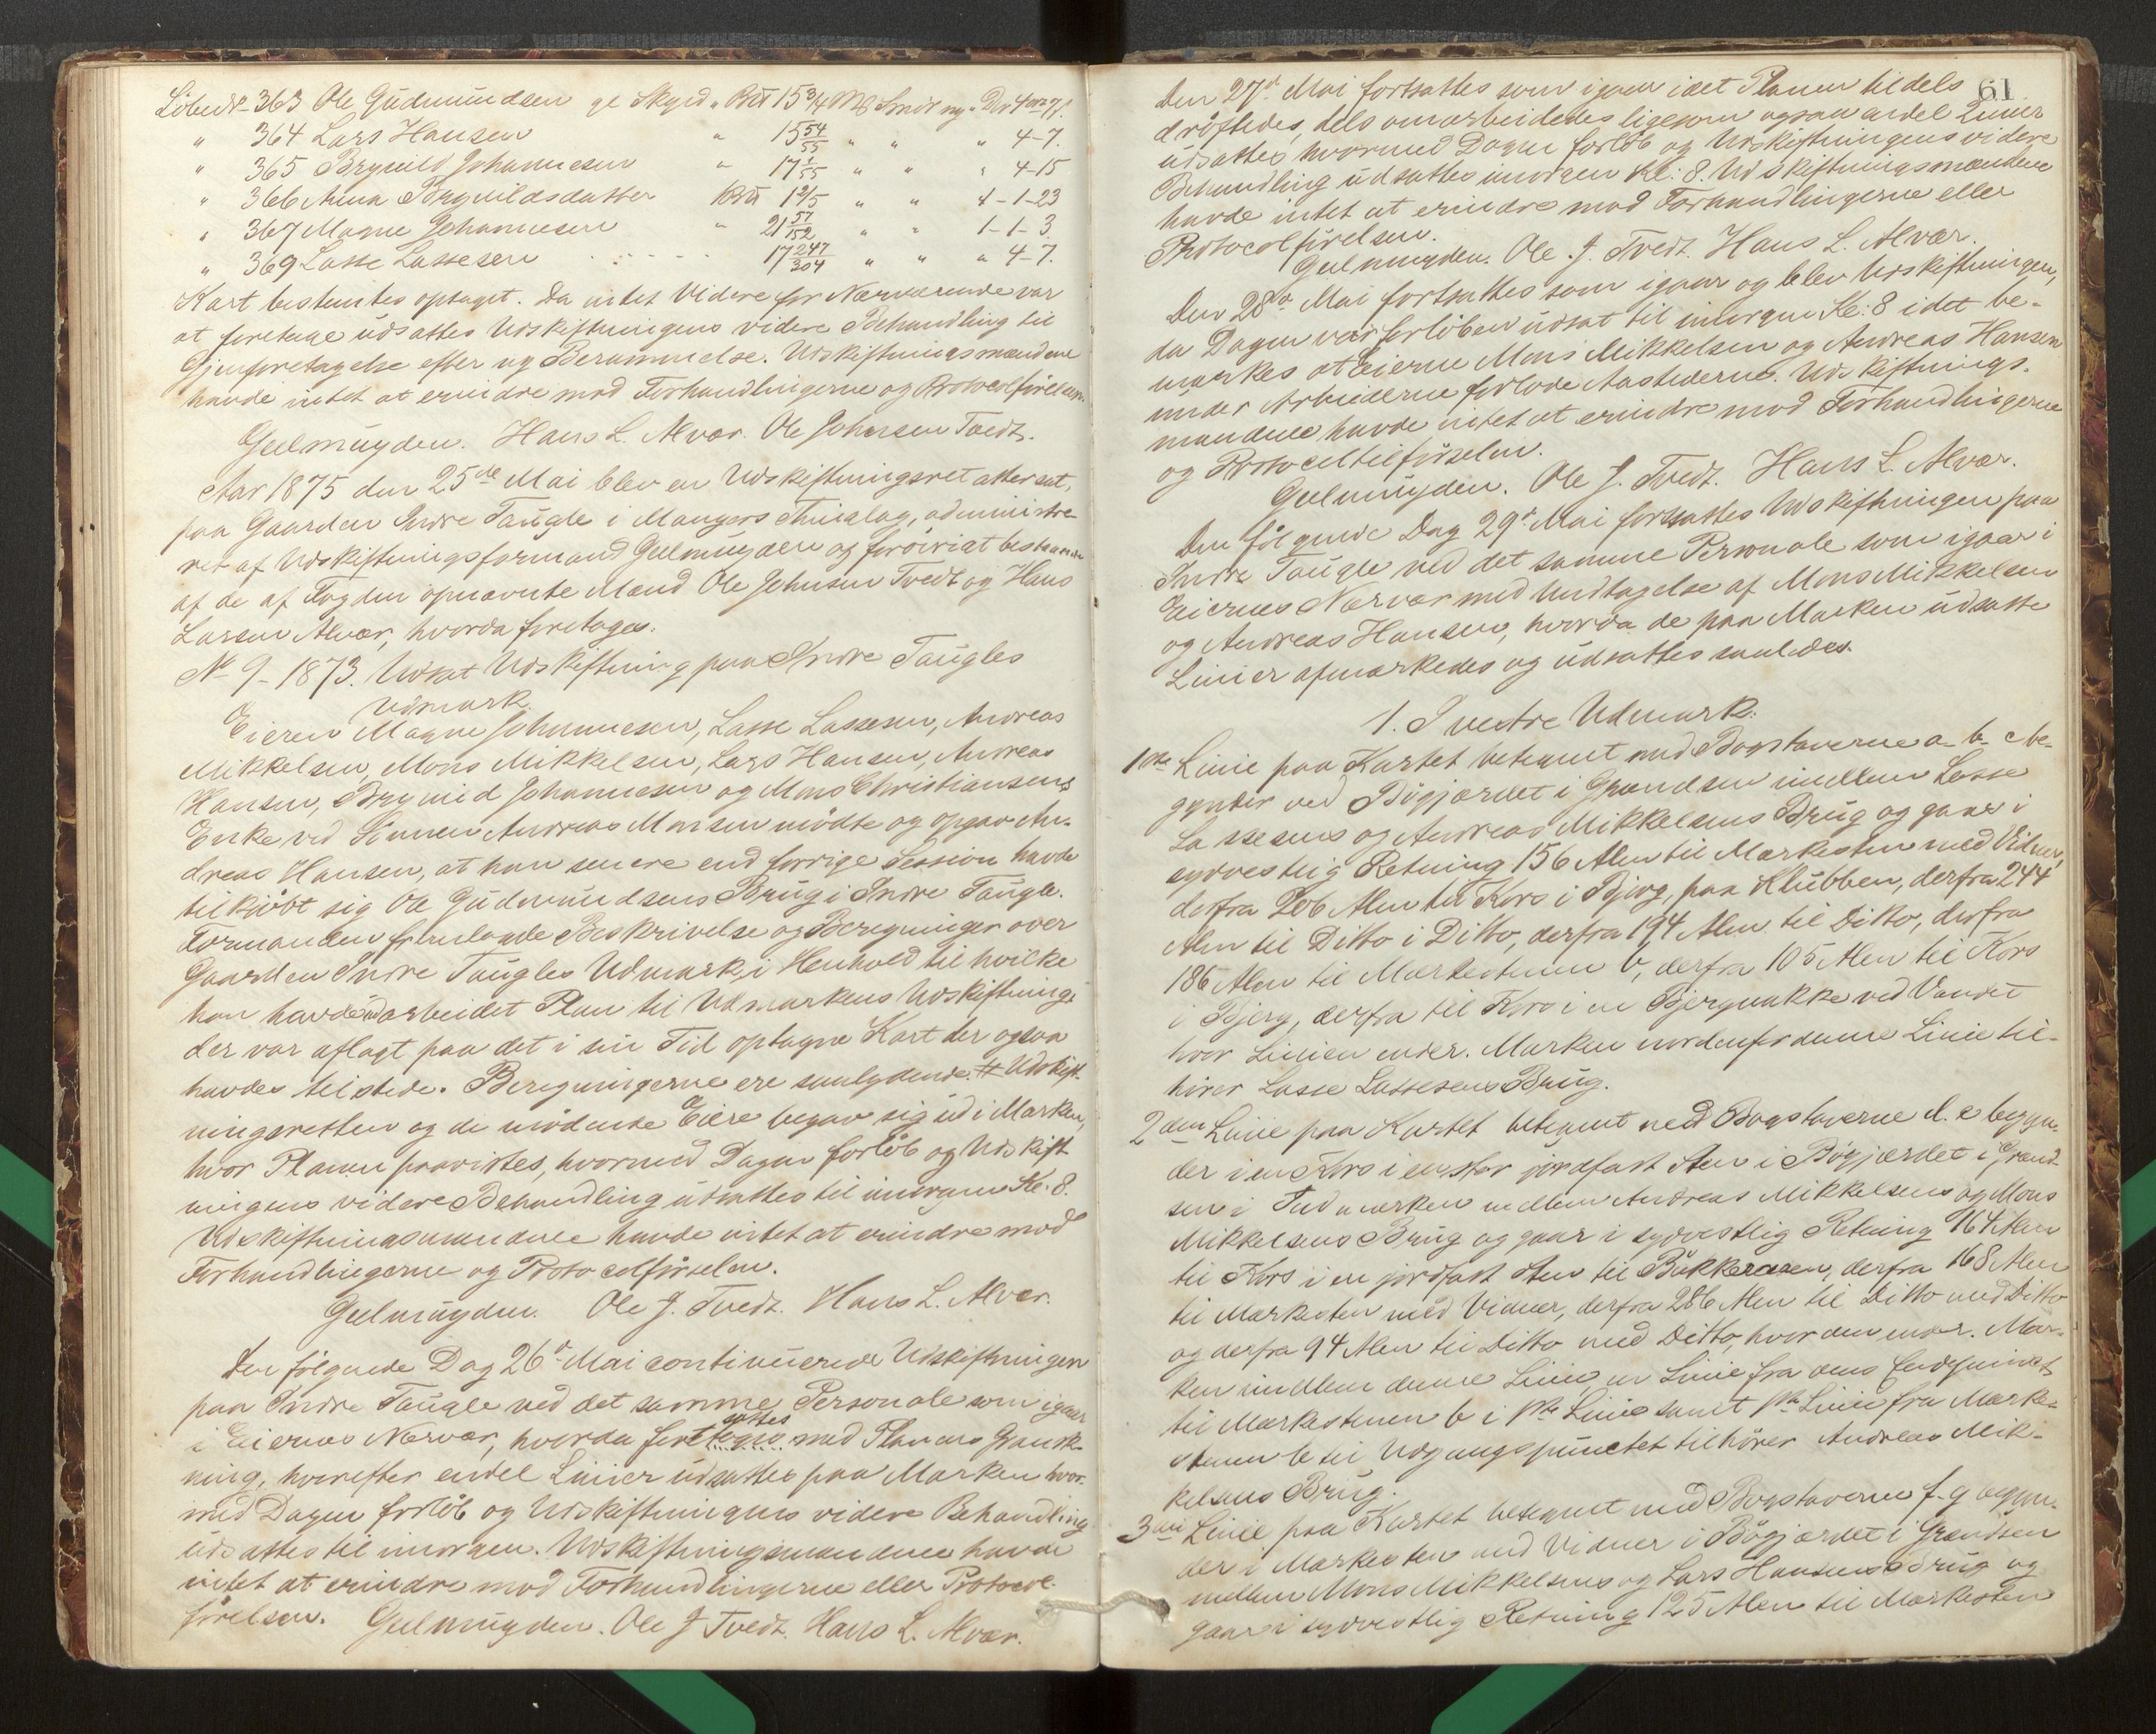 Löbe№ 363 Ole Gudmundsen gl Skyld " Bpd 15 3/4 Mk Smör ny " Dlr 4 ort 7 s.
" 364 Lars Hansen " 15 54/55 " " " 4-7.
" 365 Brynild Johannesen " 17 1/55 " " " 4-15
" 366 Anna Brynildsdatter 1 Bpd 1 2/5 " " 4-1-23
" 367 Magne Johannesen " 21 57/152 " " 1-1-3
" 369 Lasse Lassesen 17 247/304 " " " 4-7.
Kart bestemtes optaget. Da intet Videre for Nærværende var
at foretage udsattes Udskiftningens videre Behandling til
Gjenforetagelse efter ny Berammelse. Udskiftningsmændene
havde intet at erindre mod Forhandlingerne og Protocolförelsen.
Geelmuyden. Hans L. Alvær. Ole Johnsen Tvedt.
Aar 1875 den 25de Mai blev en Udskiftningsret atter sat,
paa Gaarden Indre Taugle i Mangers Thinglag, administre-
ret af Udskiftningsformand Geelmuyden og foröivrigt bestaaende
af de af Fogden opnævnte Mænd Ole Johnsen Tvedt og Hans
Larsen Alvær, hvorda foretoges.
№ 9-1873. Udsat Udskiftning paa Indre Taugles
Udmark.
Eieren Magne Johannesen, Lasse Lassesen, Andreas
Mikkelsen, Mons Mikkelsen, Lars Hansen, Andreas
Hansen, Brynild Johannesen og Mons Christiansens
Enke ved Sönnen Andreas Monsen mödte og opgav An-
dreas Hansen, at han senere end forrige Session havde
tilkjöbt sig Ole Gudmundsens Brug i Indre Taugle.
Formanden fremlagde Beskrivelse og Beregninger over
Gaarden Indre Taugles Udmark, i Henhold til hvilke
han havde udarbeidet Plan til Udmarkens Udskiftning,
der var aflagt paa det i sin Tid optagne Kart der ogsaa
havdes tilstede. Beregningerne ere saalydende # Udskift-
ningsretten og de mödende Eiere begav sig ud i Marken,
hvor Planen paavistes, hvormed Dagen forlöb og Udskift-
ningens videre Behandling udsattes til imorgen Kl. 8.
Udskiftningsmændene havde intet at erindre mod
Forhandlingerne og Protocolförelsen.
Geelmuyden. Ole J. Tvedt. Hans L. Alvær.
Den fölgende Dag 26d Mai continuerede Udskiftningen
paa Indre Taugle ved det samme Personale som igaar
i Eiernes Nærvær, hvorda foretoges sattes med Planens Gransk-
ning, hvorefter endel Linier udsattes paa Marken hvor-
med Dagen forlöb og Udskiftningens videre Behandling
udsattes til imorgen. Udskiftningsmændene havde
intet at erindre mod Forhandlingerne eller Protocol-
förelsen. Geelmuyden. Ole J Tvedt. Hans L. Alvær.
61
Den 27d Mai fortsattes som igaar idet Planen tildels
dröftedes, dels omarbeidedes ligesom ogsaa endel Linier
udsattes hvormed Dagen forlöb og Udskiftningens videre
Behandling udsattes imorgen Kl: 8. Udskiftningsmændene
havde intet at erindre mod Forhandlingerne eller
Protocolförelsen.
Geelmuyden. Ole J. Tvedt. Hans L. Alvær.
Den 28d Mai fortsattes som igaar og blev Udskiftningen,
da Dagen var forlöben udsat til imorgen Kl: 8 idet be-
mærkes at Eierne Mons Mikkelsen og Andreas Hansen
under Arbeiderne forlode Aastederne. Udskiftnings-
mændene havde intet at erindre mod Forhandlingerne
og Protocoltilförselen.
Geelmuyden. Ole J. Tvedt. Hans L. Alvær.
Den fölgende Dag 29d Mai fortsattes Udskiftningen paa
Indre Taugle ved det samme Personale som igaar i
Eiernes Nærvær med Undtagelse af Mons Mikkelsen
og Andreas Hansen, hvorda de paa Marken udsatte
Linier afmærkedes og udsattes saaledes.
1. I vestre Udmark.
1ste Linie paa Kartet betegnet med Bogstaverne a-b-c be-
gynder ved Bögjærdet i Grændsen mellem Lasse
Lassesens og Andreas Mikkelsens Brug og gaar i
sydvestlig Retning 156 Alen til Mærkesten med Vidner,
derfra 206 Alen til Kors i Bjerg, paa Klubben, derfra 244
Alen til Ditto i Ditto, derfra 194 Alen til Ditto, derfra
186 Alen til Mærkestenen b, derfra 105 Alen til Kors
i Bjerg, derfra til Kors i en Bjergnakke ved Vandet
hvor Linien ender. Marken nordenfor denne Linie til-
hörer Lasse Lassesens Brug.
2den Linie paa Kartet betegnet med Bogstaverne d. e begyn-
der i en Kors i en stor jordfast Sten i Bögjærdet i Grænd-
sen i Indmarken mellem Andreas Mikkelsens og Mons
Mikkelsens Brug og gaar i sydvestlig Retning 164 Alen
til Kors i en jordfast Sten til Bukkerausen, derfra 168 Alen
til Mærkesten med Vidner, derfra 286 Alen til Ditto med Ditto
og derfra 94 Alen til Ditto med Ditto, hvor den ender. Mar-
ken imellem denne Linie, en Linie fra dens Endepunct
til Mærkestenen b i 1ste Linie samt 1ste Linie fra Mærke-
stenen b til Udgangspunctet tilhörer Andreas Mik-
kelsens Brug.
3die Linie paa Kartet betegnet med Bogstaverne f-g begyn-
der i Mærkesten med Vidner i Bögjærdet i Grændsen
mellem Mons Mikkelsens og Lars Hansens Brug og
gaar i sydvestlig Retning 125 Alen til Mærkesten